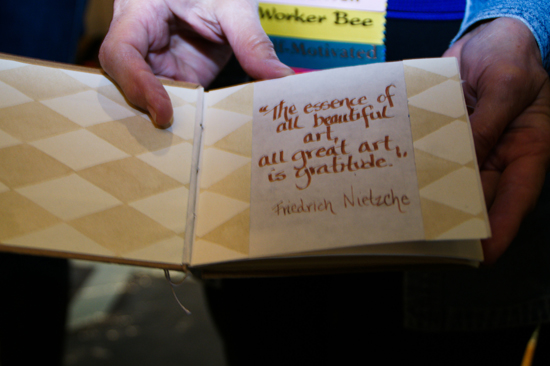 Worker Bee
Self-Motivated
"The essence of
all beautiful
art,
all great art,
is gratitude."
Friedrich Nietzche